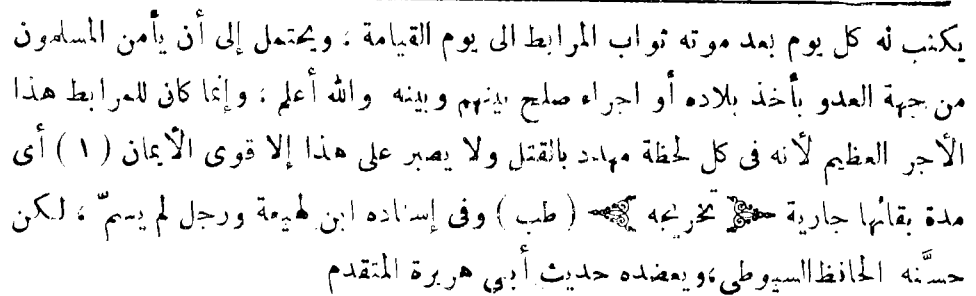 يكتب له كل يوم بعد موته ثواب المرابط الى يوم القيامة ، ويحتمل إلى أن يأمن المسلمون
من جهة العدو بأخذ بلاده أو اجراء صلح بينهم وبينه والله أعلم ، وإنما كان للمرابط هذا
الأجر العظيم لأنه فى كل لحظة مهدد بالقتل ولا يصبر على هذا إلا قوى الأيمان ( ١ ) أى
مدة بقائها جارية ﴿ تخريجه ﴾ ( طب ) وفى إسناده ابن لهيعة ورجل لم يسمّ ، لكن
حسَّنه الحافظ السيوطى ،ويعضده حديث أبي هريرة المتقدم